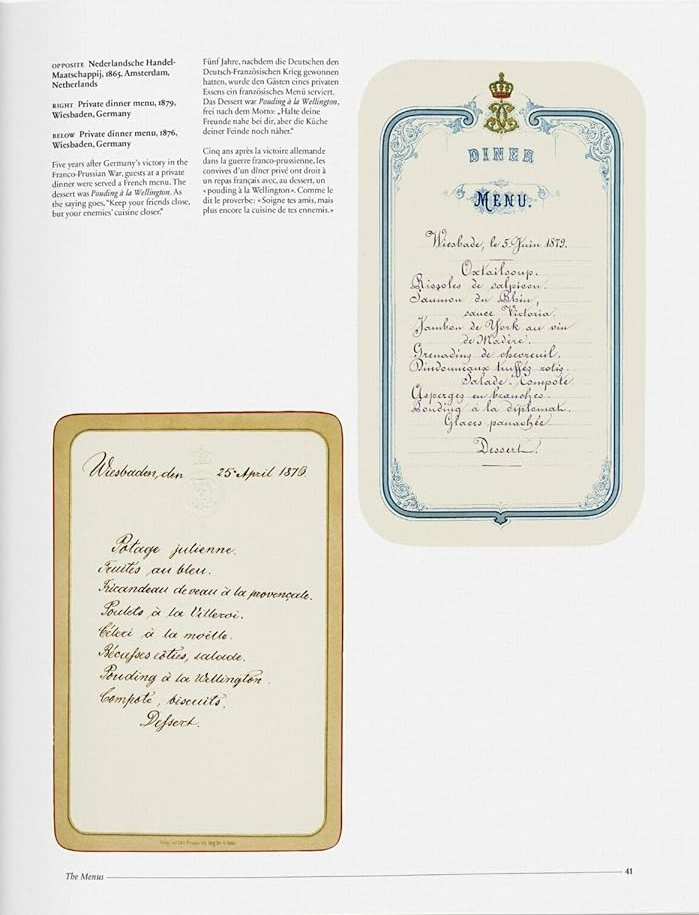 OPPOSITE Nederlandsche Handel-
Maatschappij, 1865, Amsterdam,
Netherlands
RIGHT Private dinner menu, 1879,
Wiesbaden, Germany
BELOW Private dinner menu, 1876,
Wiesbaden, Germany
Five years after Germany's victory in the
Franco-Prussian War, guests at a private
dinner were served a French menu. The
dessert was Pouding à la Wellington. As
the saying goes, "Keep your friends close,
but your enemies' cuisine closer."
Fünf Jahre, nachdem die Deutschen den
Deutsch-Französischen Krieg gewonnen
hatten, wurde den Gästen eines privaten
Essen ein französisches Menü serviert.
Das Dessert war Pouding à la Wellington,
frei nach dem Motto: „Halte deine
Freunde nahe bei dir, aber die Küche
deiner Feinde noch näher."
Cinq ans après la victoire allemande
dans la guerre franco-prussienne, les
convives d'un dîner privé ont droit à
un repas français avec, au dessert, un
« pouding à la Wellington ». Comme le
dit le proverbe : « Soigne tes amis, mais
plus encore la cuisine de tes ennemis. »
DINER
MENU.
Wiesbade, le 5. Juin 1879.
Oxtailsoup.
Rissoles de salpicon.
Saumon du Rhin,
sauce Victoria.
Jambon de York au vin
de Madère.
Grenadins de chevreuil.
Dindonneaux truffés rotis.
Salade. Compote
Asperges en branches.
Pouding à la diplomat.
Glaces panachée.
Dessert.
Wiesbaden, den 25 April 1876.
Potage julienne.
Truites au bleu.
Fricandeau de veau à la provençale.
Poulets à la Villeroi.
Céleri à la moëlle.
Bécasses rôties, salade.
Pouding à la Wellington.
Compote, biscuits.
Dessert.
The Menus
41